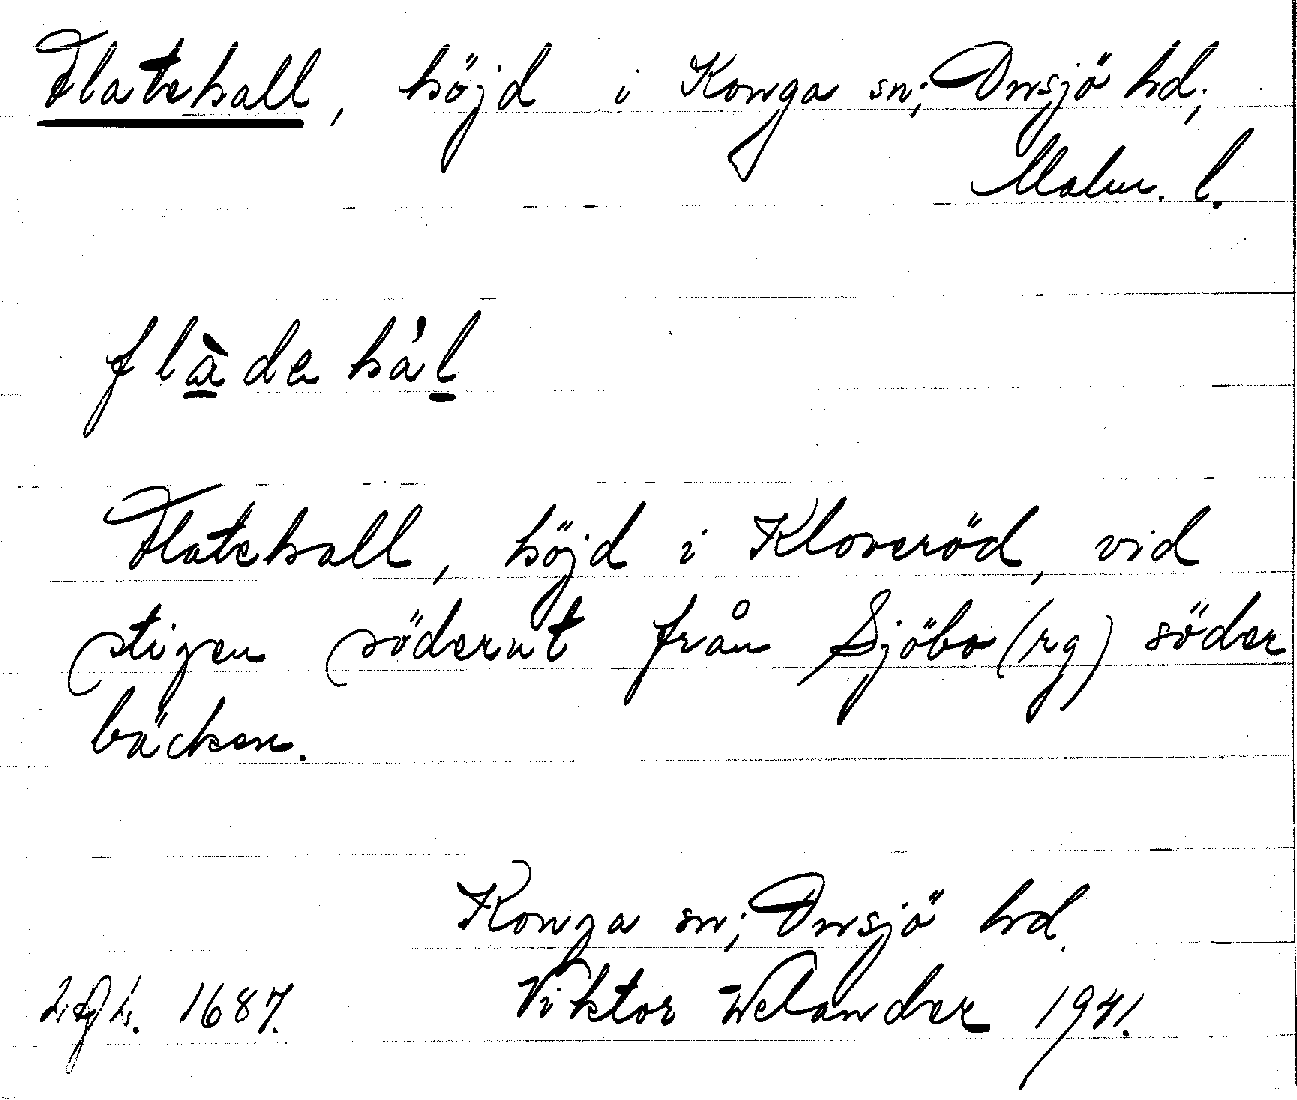 Flatehall, höjd i Konga sn; Onsjö hd;
Malm. l.
flàde hål
Flatehall, höjd i Kloveröd, vid
stigen söderut från Sjöbo (rg) söder
bäcken.
Konga sn; Onsjö hd.
1687. Viktor Welander 1941.